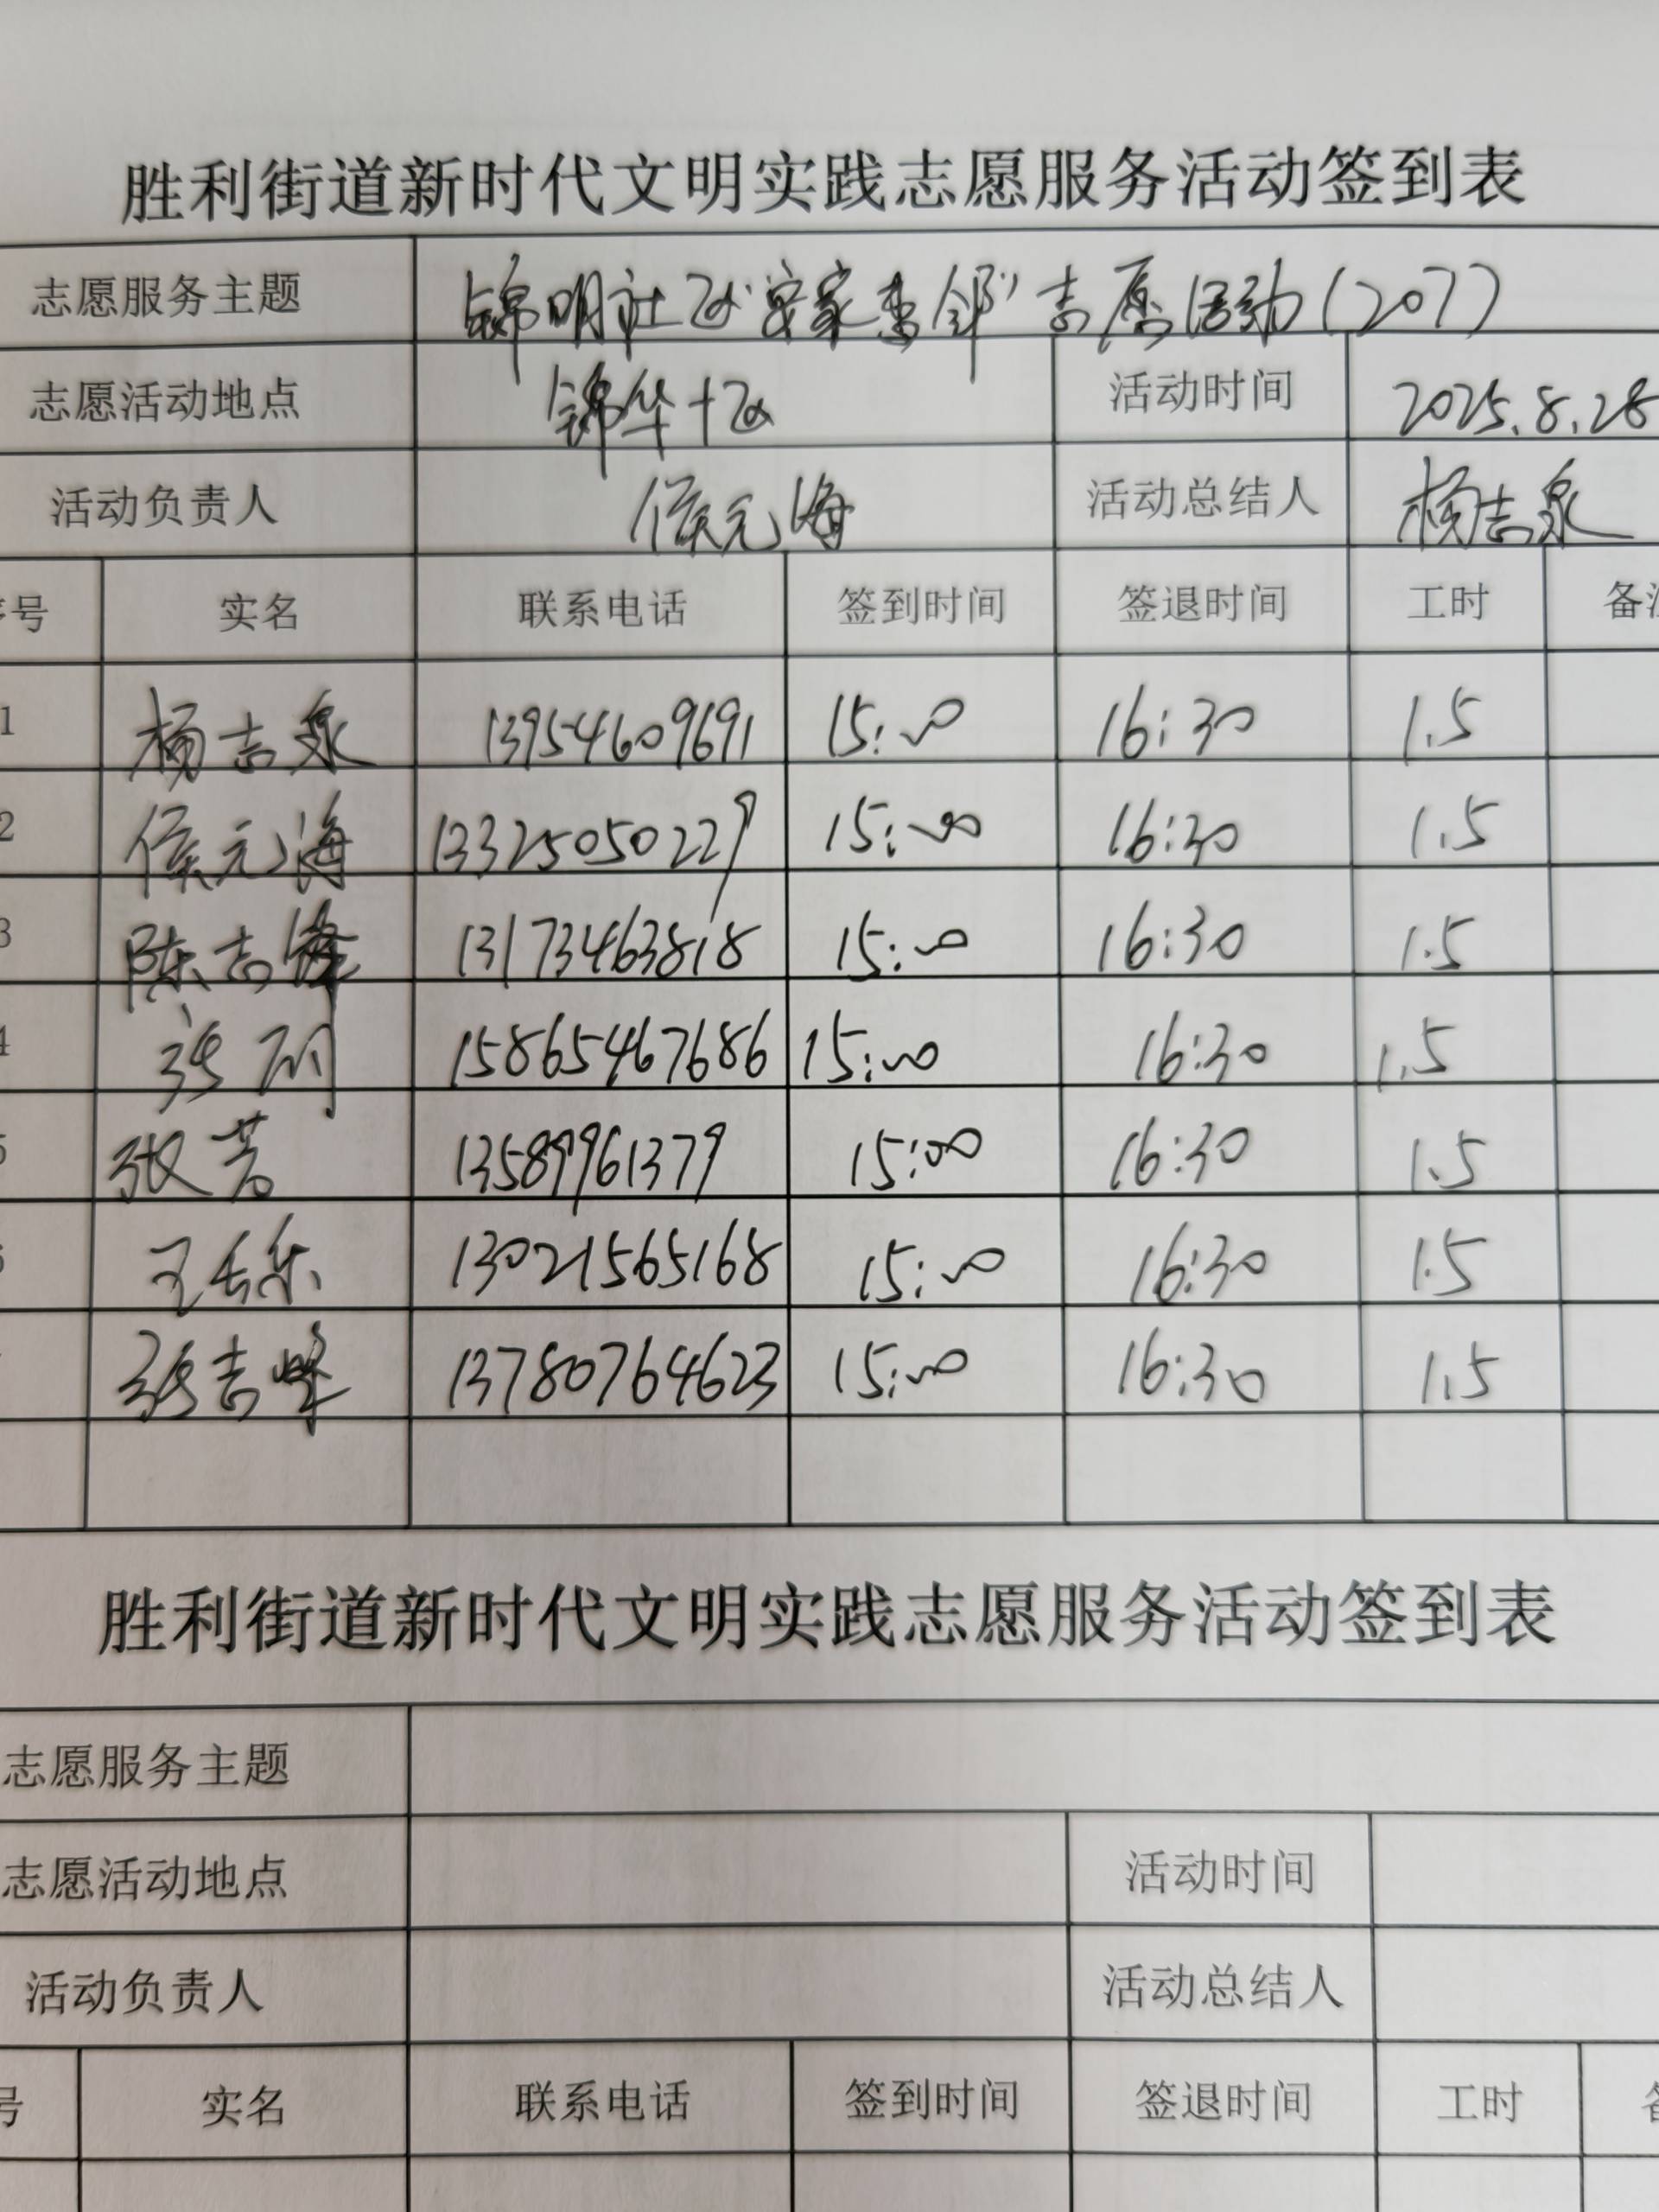 胜利街道新时代文明实践志愿服务活动签到表
志愿服务主题 锦明社区"安家李邻"志愿活动(207)
志愿活动地点 锦华十区 活动时间 2025.8.28
活动负责人 侯元海 活动总结人 杨志泉
号 实名 联系电话 签到时间 签退时间 工时 备注
1 杨志泉 13954609691 15:00 16:30 1.5
2 侯元海 13325050229 15:00 16:30 1.5
3 陈志峰 13173463818 15:00 16:30 1.5
4 张 15865467686 15:00 16:30 1.5
5 张芳 13589961379 15:00 16:30 1.5
王乐 13021565168 15:00 16:30 1.5
张吉峰 13780764623 15:00 16:30 1.5
胜利街道新时代文明实践志愿服务活动签到表
志愿服务主题
志愿活动地点 活动时间
活动负责人 活动总结人
号 实名 联系电话 签到时间 签退时间 工时